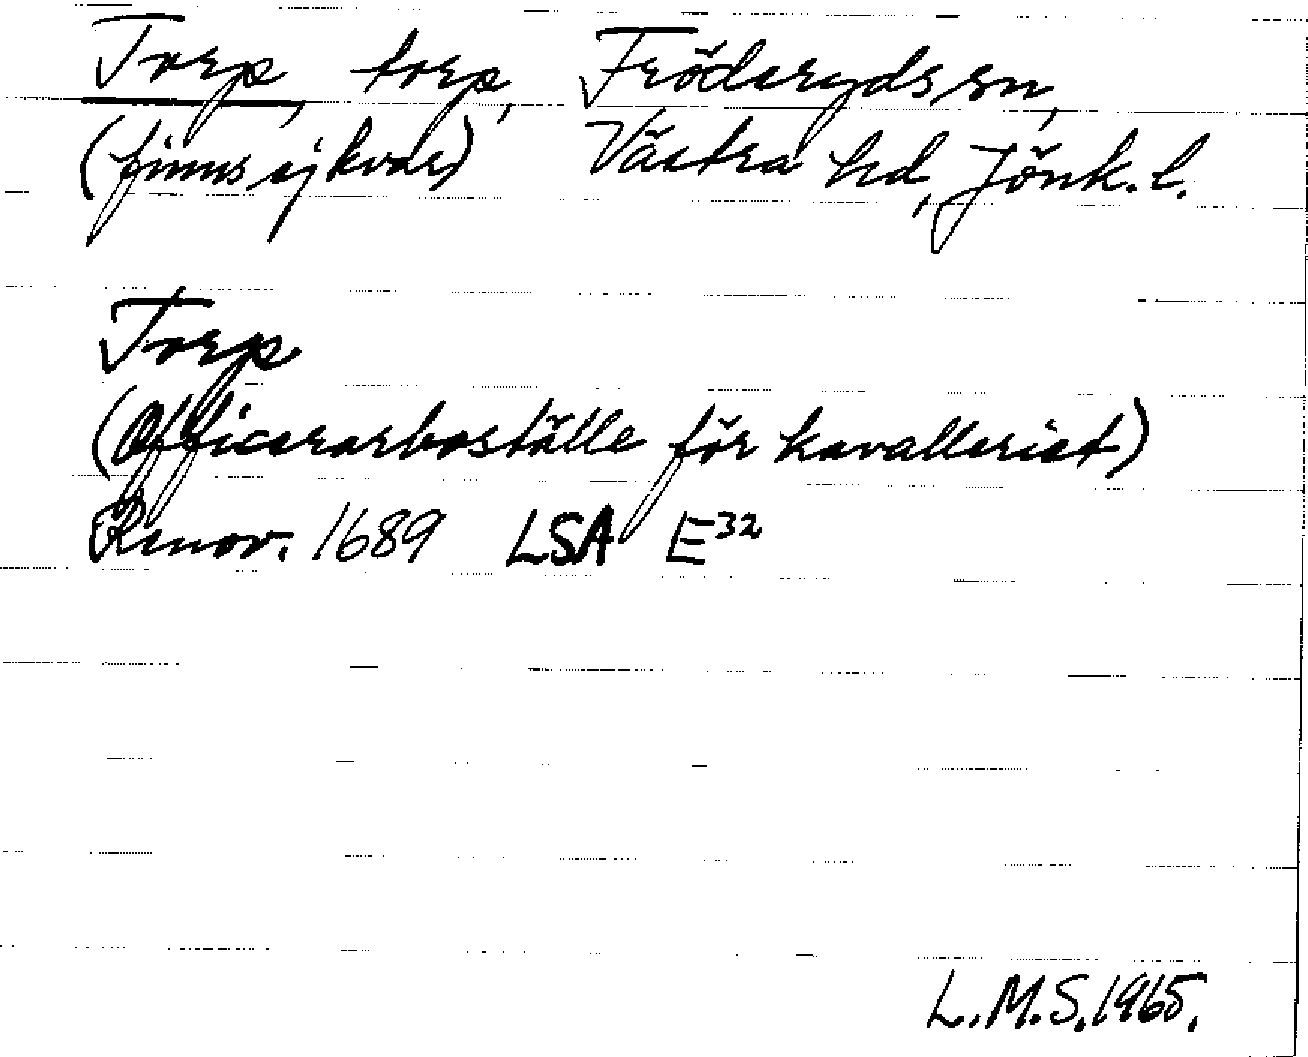 Torp, torp, Fröderyds sn,
(finns ej kvar) Västra hd, Jönk. l.
Torp
(Officerarboställe för kavalleriet)
Renov. 1689 LSA E³²
L.M.S. 1965.